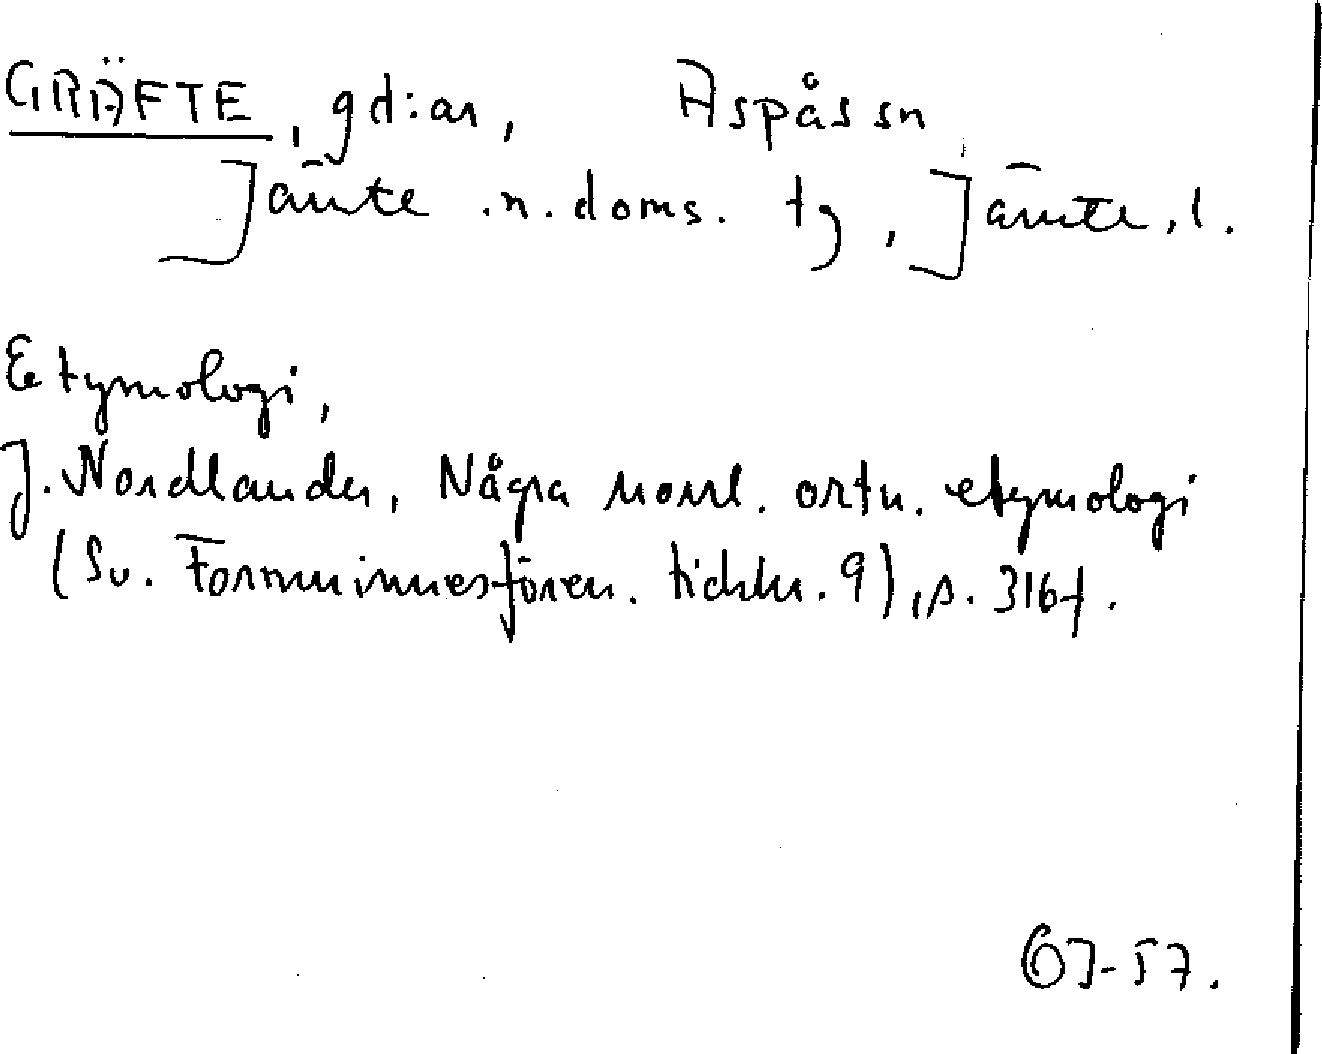 GRÄFTE, gd:ar, Aspås sn
Jämte .n. doms. tg, Jämte, l.
Etymologi,
J. Nordlander, Några norrl. ortn. etymologi
(Sv. Fornminnesfören. tidskr. 9), s. 316 f.
ÖJ-57.